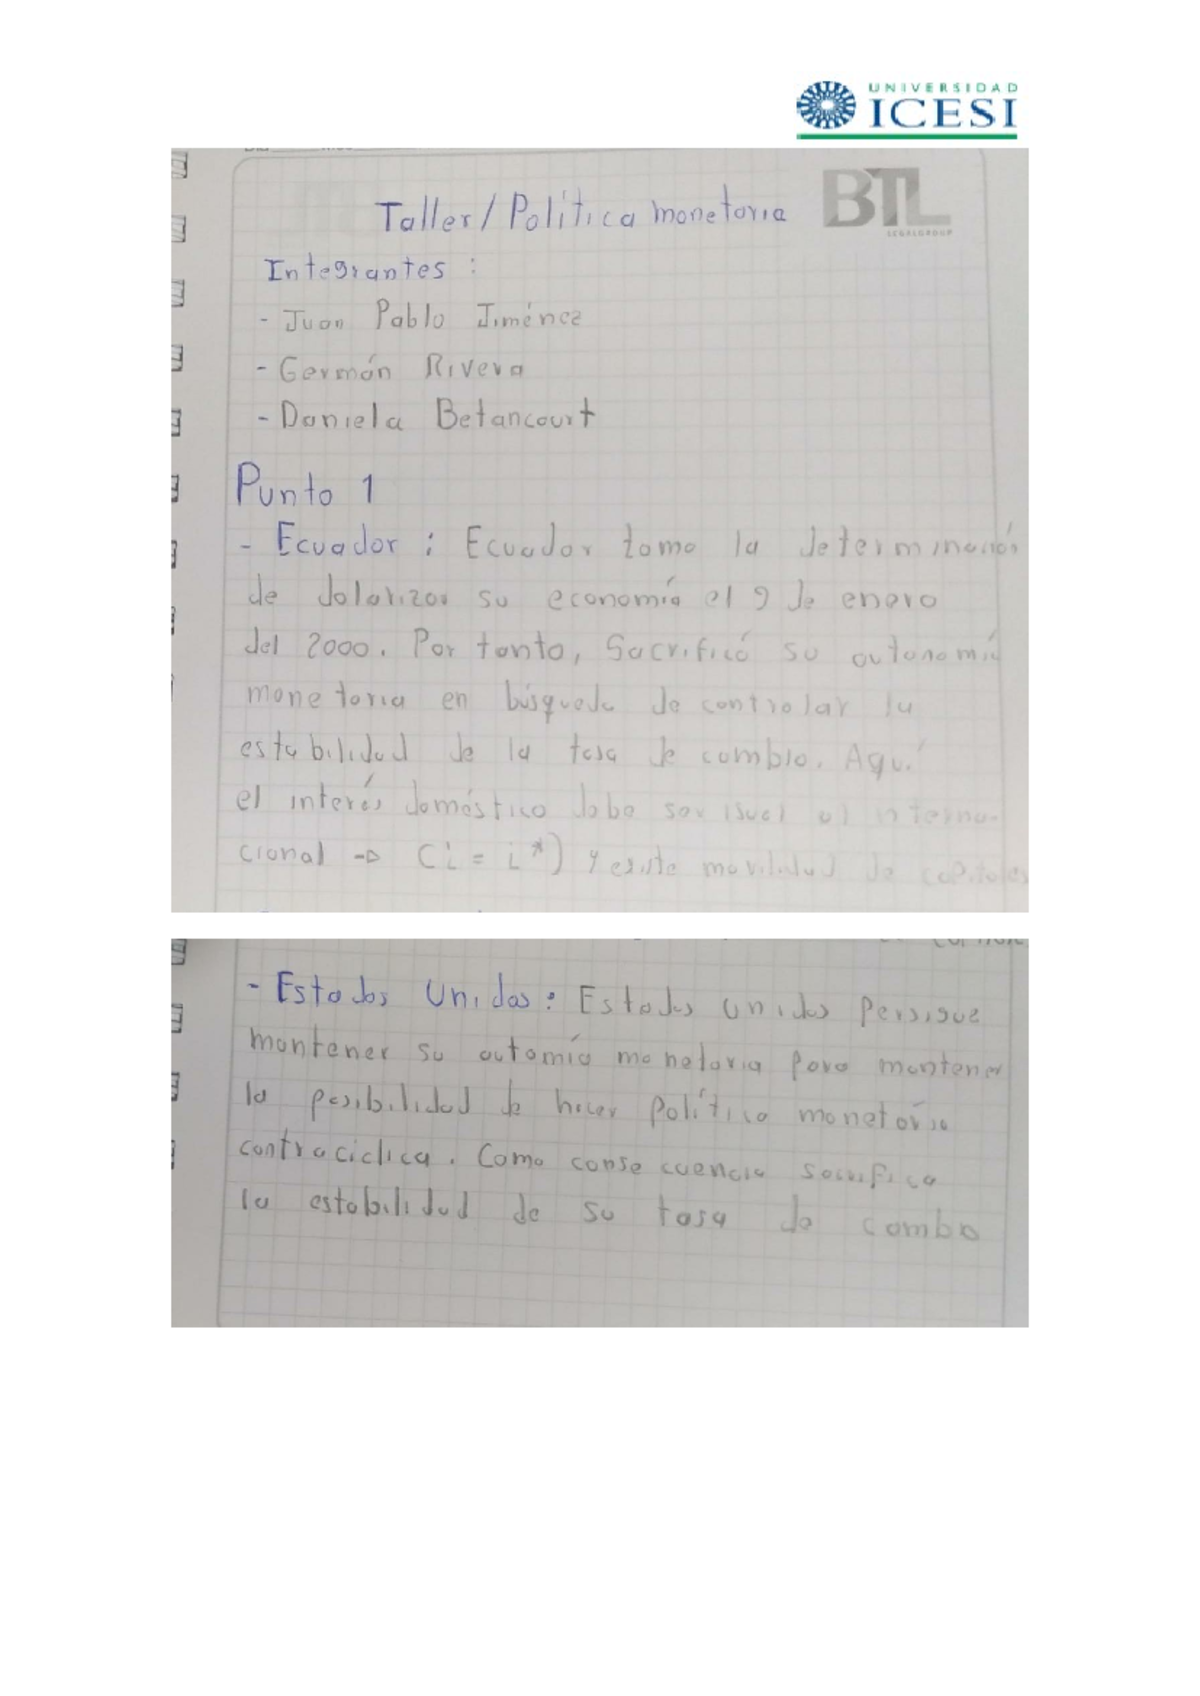 UNIVERSIDAD
ICESI
BTL
LEGALGROUP
Taller / Política monetaria
Integrantes :
- Juan Pablo Jiménez
- Germán Rivera
- Daniela Betancourt
Punto 1
- Ecuador : Ecuador tomo la determinación
de dolarizar su economía el 9 de enero
del 2000. Por tanto, Sacrificó su autonomía
monetaria en búsqueda de controlar la
estabilidad de la tasa de cambio. Aquí
el interés doméstico debe ser igual al interna-
cional -> (i = i*) y existe movilidad de capitales
- Estados Unidos : Estados Unidos persigue
mantener su automía monetaria para mantener
la posibilidad de hacer política monetaria
contraciclica. Como consecuencia sacrifica
la estabilidad de su tasa de cambo